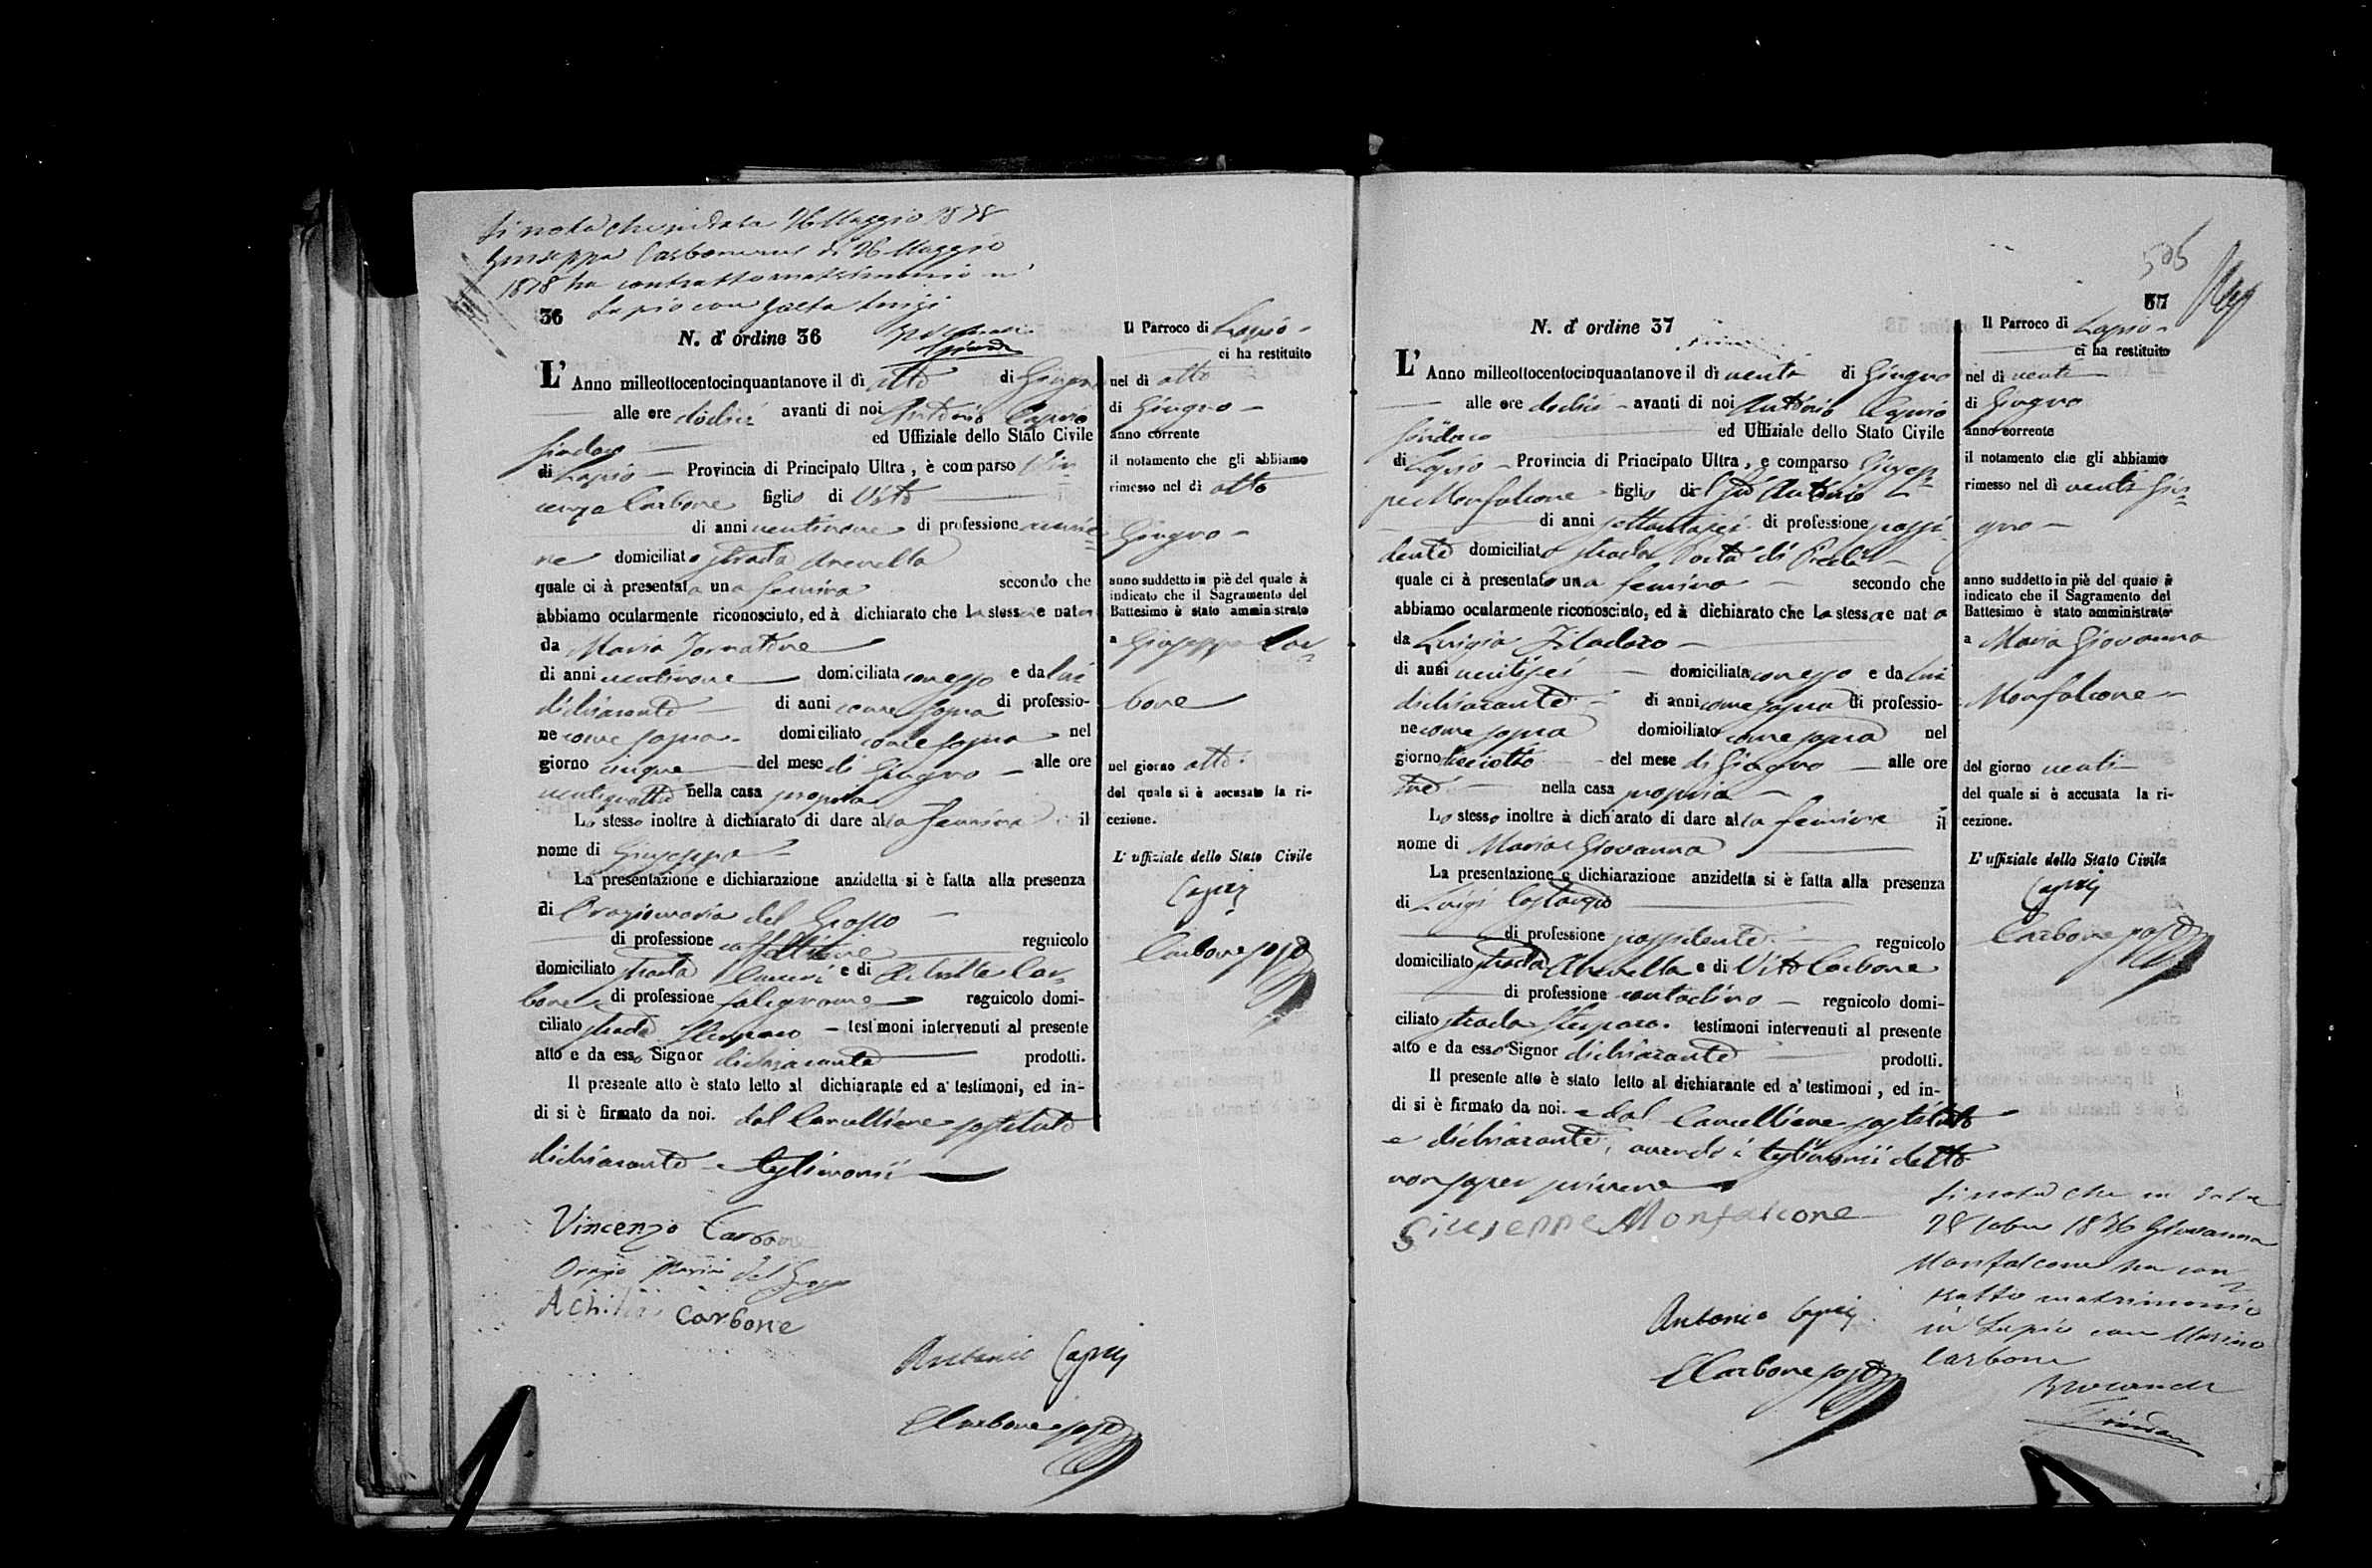 Si nota che in data 26 Maggio 1878
Giuseppa Carbone nel dì 26 Maggio
1878 ha contratto matrimonio in
Lapio con Gaeta Luigi
36
N. d' ordine 36
L' Anno milleottocentocinquantanove il dì otto di Giugno
alle ore dodici avanti di noi Antonio Caprio
Sindaco ed Uffiziale dello Stato Civile
di Lapio Provincia di Principato Ultra, è comparso Vin=
cenzo Carbone figlio di Vito
di anni ventinove di professione
domiciliato strada Arenella
quale ci à presentata una femina secondo che
abbiamo ocularmente riconosciuto, ed à dichiarato che la stessa e nata
da Maria
di anni ventinove domiciliata con esso e da lui
dichiarante di anni come sopra di professio-
ne come sopra domiciliato come sopra nel
giorno cinque del mese di Giugno alle ore
ventiquattro nella casa propria
Lo stesso inoltre à dichiarato di dare alla femina il
nome di Giuseppa
La presentazione e dichiarazione anzidetta si è fatta alla presenza
di Oraziomaria del Grosso
di professione regnicolo
domiciliato strada e di Achille Car=
bone di professione falegname regnicolo domi-
ciliato strada testimoni intervenuti al presente
atto e da esso Signor dichiarante prodotti.
Il presente atto è stato letto al dichiarante ed a' testimoni, ed in-
di si è firmato da noi. dal Cancelliere sostituto
dichiarante e testimonii
Vincenzo Carbone
Orazio Maria del Grosso
Achille Carbone
Antonio Caprii
Carbone sosto
Il Parroco di Lapio
ci ha restituito
nel dì otto
di Giugno
anno corrente
il notamento che gli abbiamo
rimesso nel dì otto
Giugno
anno suddetto in piè del quale à
indicato che il Sagramento del
Battesimo è stato amministrato
a Giuseppa Car=
bone
nel giorno otto
del quale si è accusato la ri-
cezione.
L' uffiziale dello Stato Civile
Caprii
Carbone sosto
505
37
N. d' ordine 37
L' Anno milleottocentocinquantanove il dì venti di Giugno
alle ore dodici avanti di noi Antonio Caprio
Sindaco ed Uffiziale dello Stato Civile
di Lapio Provincia di Principato Ultra, e comparso Giusep=
pe Monfalcone figlio di Antonio
di anni di professione possi=
dente domiciliato strada Porta di
quale ci à presentato una femina secondo che
abbiamo ocularmente riconosciuto, ed à dichiarato che la stessa e nata
da Luigia
di anni ventisei domiciliata con esso e da lui
dichiarante di anni come sopra di professio-
ne come sopra domiciliato come sopra nel
giorno dieciotto del mese di Giugno alle ore
tre nella casa propria
Lo stesso inoltre à dich'arato di dare alla femina il
nome di Maria Giovanna
La presentazione e dichiarazione anzidetta si è fatta alla presenza
di Luigi Costanzo
di professione possidente regnicolo
domiciliato strada Arenella e di Vito Carbone
di professione contadino regnicolo domi-
ciliato strada testimoni intervenuti al presente
atto e da esso Signor dichiarante prodotti.
Il presente atto è stato letto al dichiarante ed a' testimoni, ed in-
di si è firmato da noi. e dal Cancelliere sostituto
e dichiarante, avendo i testimonii detto
non saper scrivere
Giuseppe Monfalcone
Antonio Caprii
Carbone sosto
Il Parroco di Lapio
ci ha restituito
nel dì venti
di Giugno
anno corrente
il notamento che gli abbiamo
rimesso nel dì venti Giu=
gno
anno suddetto in piè del quale à
indicato che il Sagramento del
Battesimo è stato amministrato
a Maria Giovanna
Monfalcone
del giorno venti
del quale si è accusata la ri-
cezione.
L' uffiziale dello Stato Civile
Caprii
Carbone sosto
Si nota che in data
Giovanna
Monfalcone ha con=
tratto matrimonio
in Lapio con Marino
Carbone
Sindaco